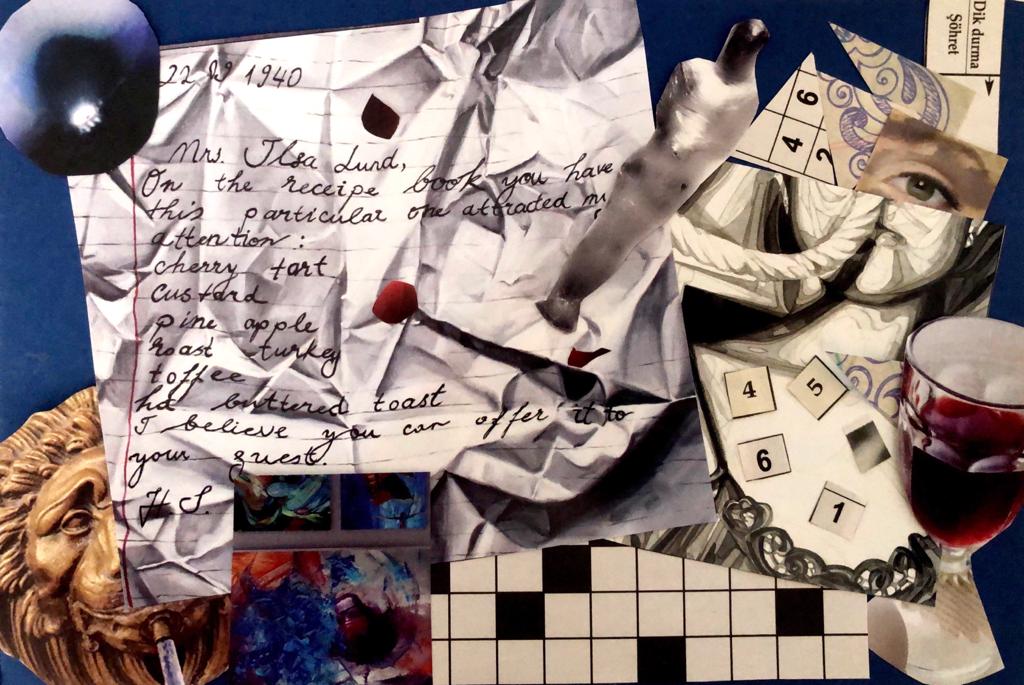 22 IV 1940
Mrs. Ilsa Lund,
On the receipe book you have
this particular one attracted my
attention:
cherry tart
custard
pine apple
roast turkey
toffee
hd buttered toast
I believe you can offer it to
your guest.
H S.
Dik durma
Şöhret
6
4
2
4
5
6
1